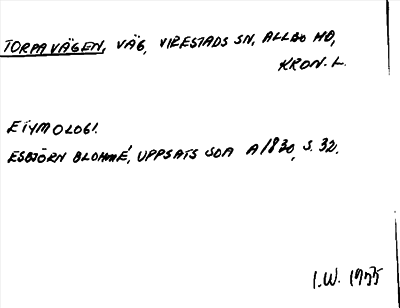 TORPAVÄGEN, VÄG, VIRESTADS SN, ALLBO HD,
KRON. L.
ETYMOLOGI.
ESBJÖRN BLOHMÉ, UPPSATS SOA A 1830, S. 32.
I.W. 1975